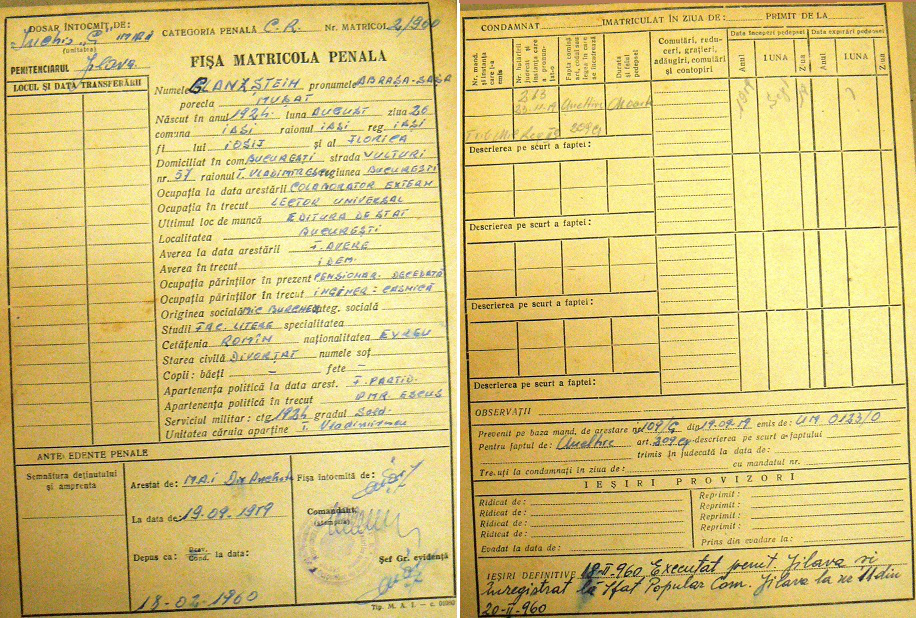 DOSAR ÎNTOCMIT DE:
(unitatea)
PENITENCIARUL Jilava
LOCUL ȘI DATA TRANSFERĂRII
CATEGORIA PENALĂ C.R. Nr. MATRICOL 2/1960
FIȘA MATRICOLA PENALA
Numele BLANKȘTEIN pronumele
porecla MUȘAT
Născut în anul 1924 luna AUGUST ziua 26
comuna IAȘI raionul IAȘI reg IAȘI
fi lui IOSIF și al FLORICA
Domiciliat în com BUCUREȘTI strada VULTURI
nr. 57 raionul T. VLADIMIRESCU regiunea BUCUREȘTI
Ocupația la data arestării COLABORATOR EXTERN
Ocupația în trecut LECTOR UNIVERSAL
Ultimul loc de muncă EDITURA DE STAT
Localitatea BUCUREȘTI
Averea la data arestării F. AVERE
Averea în trecut IDEM
Ocupația părinților în prezent PENSIONAR. DECEDATĂ
Ocupația părinților în trecut INGINER: CASNICĂ
Originea socială MIC BURGHEZ categ. socială
Studii FAC. LITERE specialitatea
Cetățenia ROMÎN naționalitatea EVREU
Starea civilă DIVORȚAT numele soț
Copii: băeți - fete -
Apartenența politică la data arest. F. PARTID
Apartenența politică în trecut PMR EXCUS
Serviciul militar: ctg 1924 gradul Sold.
Unitatea căruia aparține T. Vladimirescu
ANTECEDENTE PENALE
Semnătura deținutului
și amprenta
Arestat de: MAI
La data de: 19.09.1959
Depus ca: Prev. Cond. la data:
18-02-1960
Fișa întocmită de:
Comandant,
(ștampila)
Șef Gr. evidență
Tip. M. A. I.
CONDAMNAT IMATRICULAT ÎN ZIUA DE: PRIMIT DE LA
Nr. mand. și instanța care l-a emis
Nr. hotărîrii judecat și instanța care a pronunțat-o
Fapta comisă art. codul sau legea în care se încadrează
Durata și felul pedepsei
Comutări, reduceri, grațieri, adăugiri, comutări și contopiri
Data începerii pedepsei
Data expirării pedepsei
Anul LUNA Ziua Anul LUNA Ziua
209
Descrierea pe scurt a faptei:
Descrierea pe scurt a faptei:
Descrierea pe scurt a faptei:
Descrierea pe scurt a faptei:
OBSERVAȚII
Prevenit pe baza mand. de arestare nr 109/G din 19.09.59 emis de: UM 0123/O
Pentru faptul de: Uneltire art. 209 descrierea pe scurt a faptului
trimis în judecată la data de:
Trecuți la condamnați în ziua de: cu mandatul nr.
IEȘIRI PROVIZORI
Ridicat de: Reprimit:
Ridicat de: Reprimit:
Ridicat de: Reprimit:
Ridicat de: Reprimit:
Evadat la data de: Prins din evadare la:
IEȘIRI DEFINITIVE 18-II-960 Executat penit. Jilava și
înregistrat la Sfat Popular Com. Jilava la nr 11 din
20-II-960